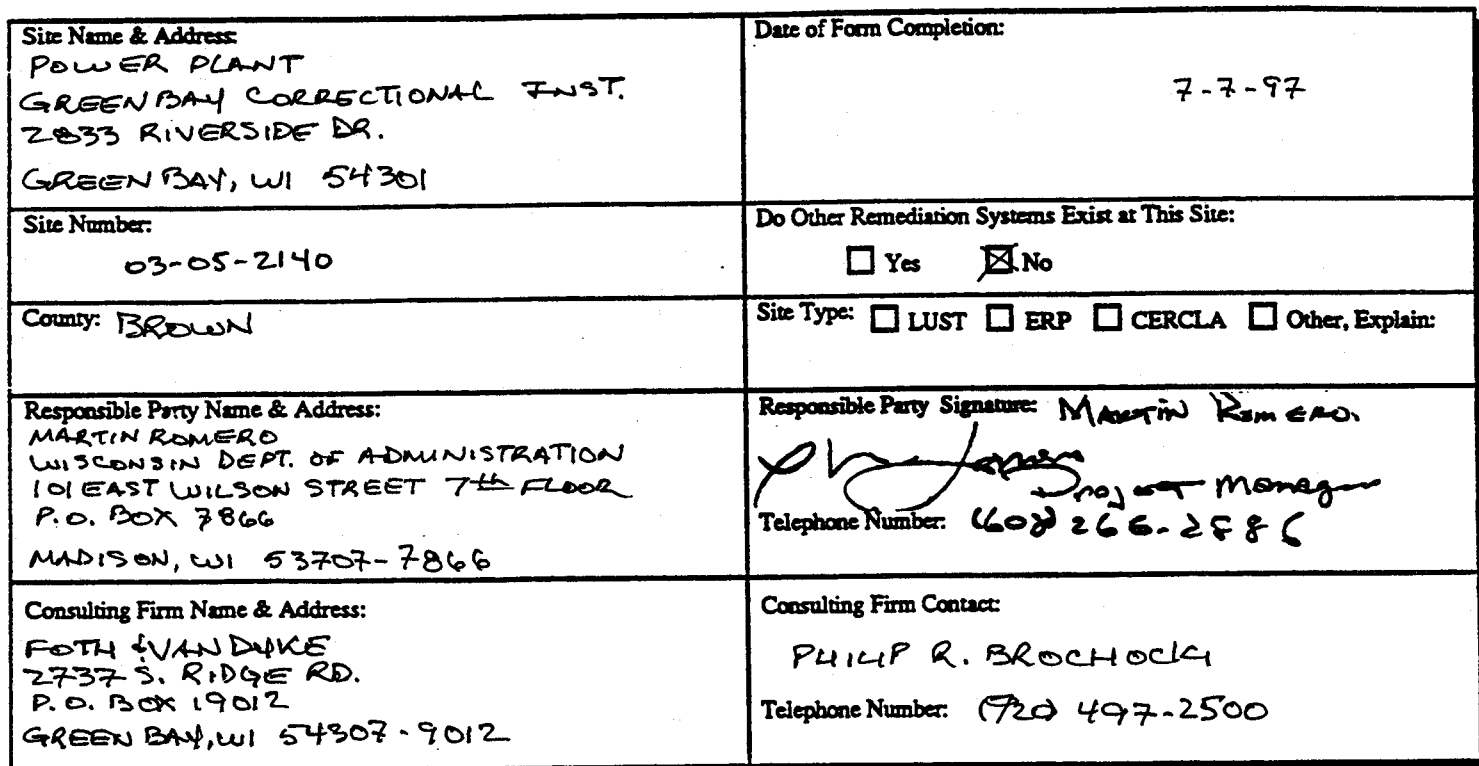 Site Name & Address:
POWER PLANT
GREEN BAY CORRECTIONAL INST.
2833 RIVERSIDE DR.
GREEN BAY, WI 54301
Date of Form Completion:
7-7-97
Site Number:
03-05-2140
Do Other Remediation Systems Exist at This Site:
Yes No
County: BROWN
Site Type: LUST ERP CERCLA Other, Explain:
Responsible Party Name & Address:
MARTIN ROMERO
WISCONSIN DEPT. OF ADMINISTRATION
101 EAST WILSON STREET 7th FLOOR
P.O. BOX 7866
MADISON, WI 53707-7866
Responsible Party Signature: MARTIN ROMERO.
Project Manager
Telephone Number: (608) 266-
Consulting Firm Name & Address:
FOTH & VAN DYKE
2737 S. RIDGE RD.
P.O. BOX 19012
GREEN BAY, WI 54307-9012
Consulting Firm Contact:
PHILIP R. BROCHOCKI
Telephone Number: (920) 497-2500